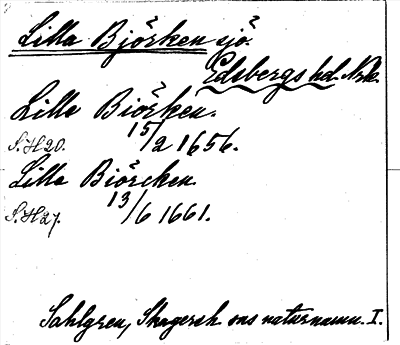 Lilla Björken sjö.
Edsbergs hd. Nrk.
Lille Biörken.
S.H 20. 15/2 1656.
Lille Biörcken.
S.H 27. 13/6 1661.
Sahlgren, Skagersh. sns naturnamn. I.